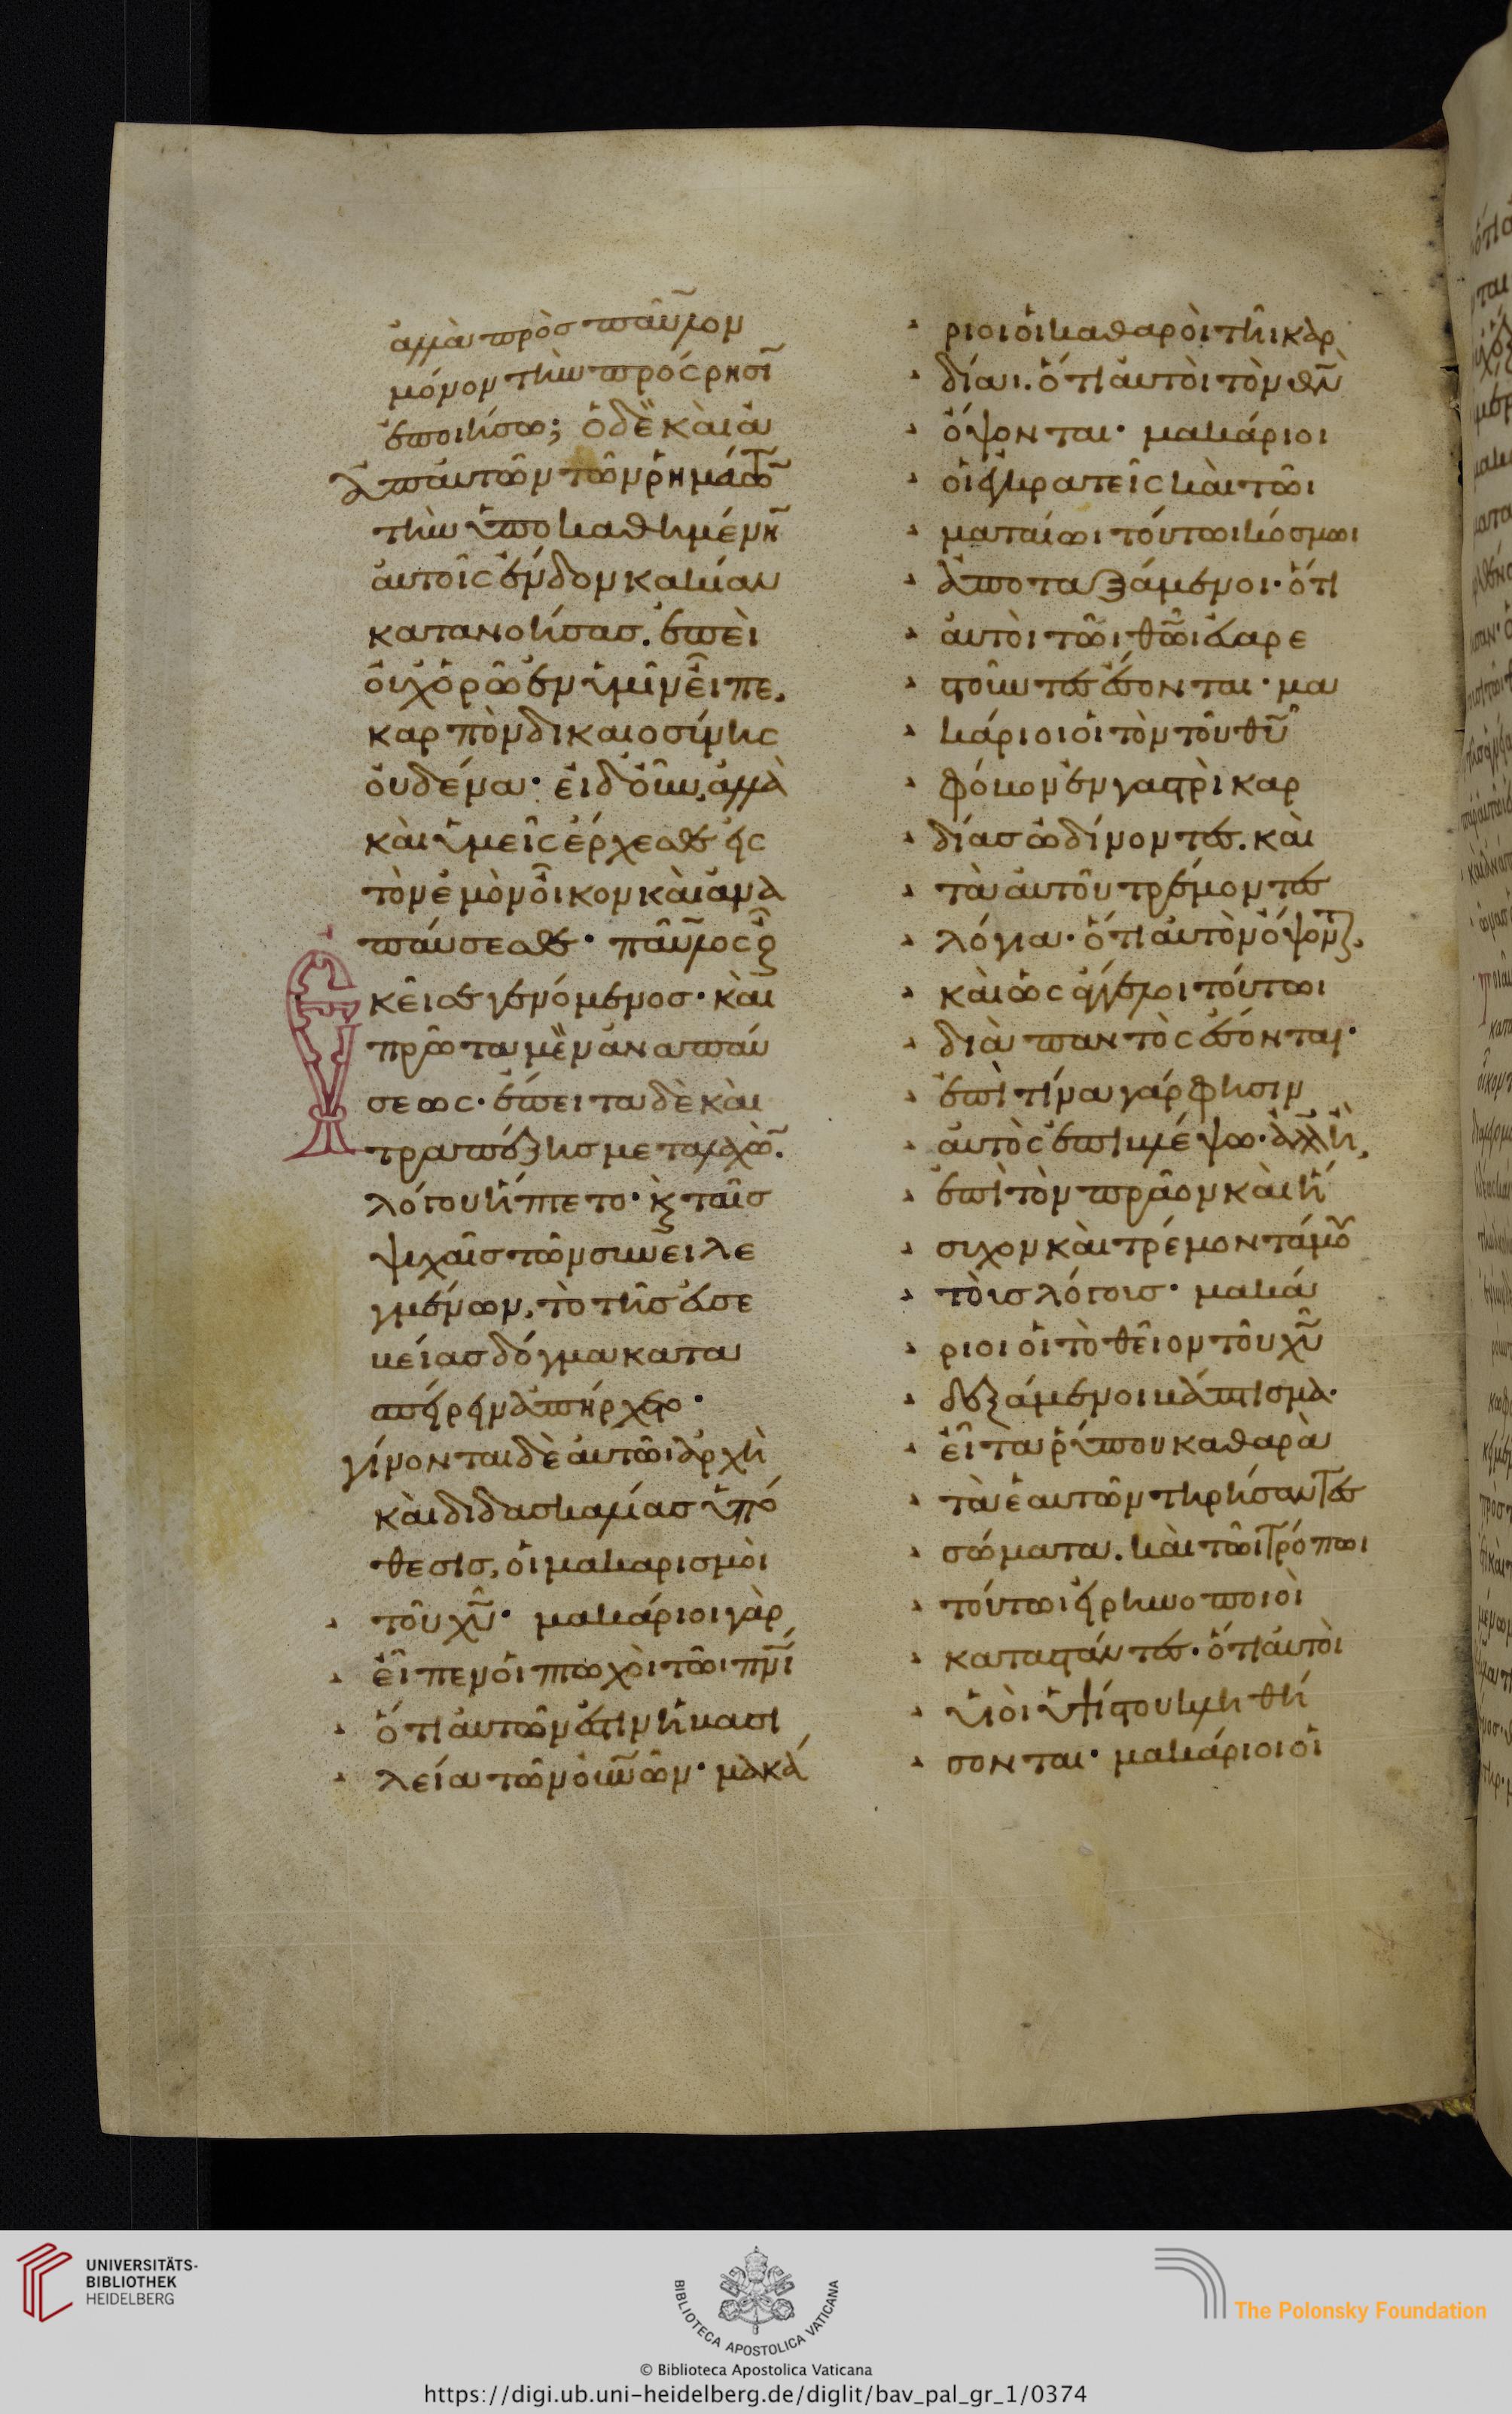 ἀλλὰ πρὸς παῦλον
μόνον τὴν πρόσρησῖ
ἐποιήσω; ὁ δὲ καὶ ἀ
π' αὐτῶν τῶν ῥημάτω̃
τὴν ὑποκαθημένη̃
αὐτοῖς ἔνδον κακίαν
κατανοήσας. ἐπεὶ
οὐχ ὁρῶ ἐν ὑμῖν εἶπε,
καρπὸν δικαιοσύνης
οὐδένα· εἰ δ' οὖν, ἀλλὰ
καὶ ὑμεῖς ἔρχεσθε εἰς
τὸν ἐμὸν οἶκον καὶ ἀνα
παύσεσθε· παῦλος δὲ
ἐκεῖσε γενόμενος· καὶ
πρῶτα μὲν ἀναπαύ
σεως· ἔπειτα δὲ καὶ
τραπέζης μεταλαχὼ̃.
λόγου ἥπτετο· κ̀ ταῖς
ψυχαῖς τῶν συνειλε
γμένων, τὸ τῆς εὐσε
βείας δόγμα κατα
σπείρειν ἀπήρχετο·
γίνονται δὲ αὐτῶι ἀρχὴ
καὶ διδασκαλίας ὑπό
θεσις, οἱ μακαρισμοὶ
τοῦ χῦ· μακάριοι γὰρ
εἶπεν οἱ πτωχοὶ τῶι πνῖ
ὅτι αὐτῶν ἐστιν ἡ βασι
λεία τῶν οὐνῶν· μακά
ριοι οἱ καθαροὶ τῆι καρ
δίαι. ὅτι αὐτοὶ τὸν θν̄
ὄψονται· μακάριοι
οἱ ἐγκρατεῖς καὶ τῶι
ματαίωι τούτωι κόσμωι
ἀποταξάμενοι· ὅτι
αὐτοὶ τῶι θῶι εὐαρε
στοῦντες ἔσονται· μα
κάριοι οἱ τὸν τοῦ θῦ
φόβον ἐν γαστρὶ καρ
δίας ὠδίνοντες. καὶ
τὰ αὐτοῦ τρέμοντες
λόγια· ὅτι αὐτὸν ὄψοντ,
καὶ ὡς ἄγγελοι τούτωι
διὰ παντὸς ἔσονται·
ἐπὶ τίνα γάρ φησιν
αὐτὸς ἐπιβλέψω· ἀλλ' ἢ,
ἐπὶ τὸν πρᾶον καὶ ἥ
συχον καὶ τρέμοντά μου
τοὺς λόγους· μακά
ριοι οἱ τὸ θεῖον τοῦ χῦ
δεξάμενοι βάπτισμα·
εἶτα ῥύπου καθαρὰ
τὰ ἑαυτῶν τηρήσαντες
σώματα. καὶ τῶι τρόπωι
τούτωι εἰρηνοποιοὶ
καταστάντες· ὅτι αὐτοὶ
υἱοὶ ὑψίστου κληθή
σονται· μακάριοι οἱ
UNIVERSITÄTS-
BIBLIOTHEK
HEIDELBERG
BIBLIOTECA APOSTOLICA VATICANA
The Polonsky Foundation
© Biblioteca Apostolica Vaticana
https://digi.ub.uni-heidelberg.de/diglit/bav_pal_gr_1/0374